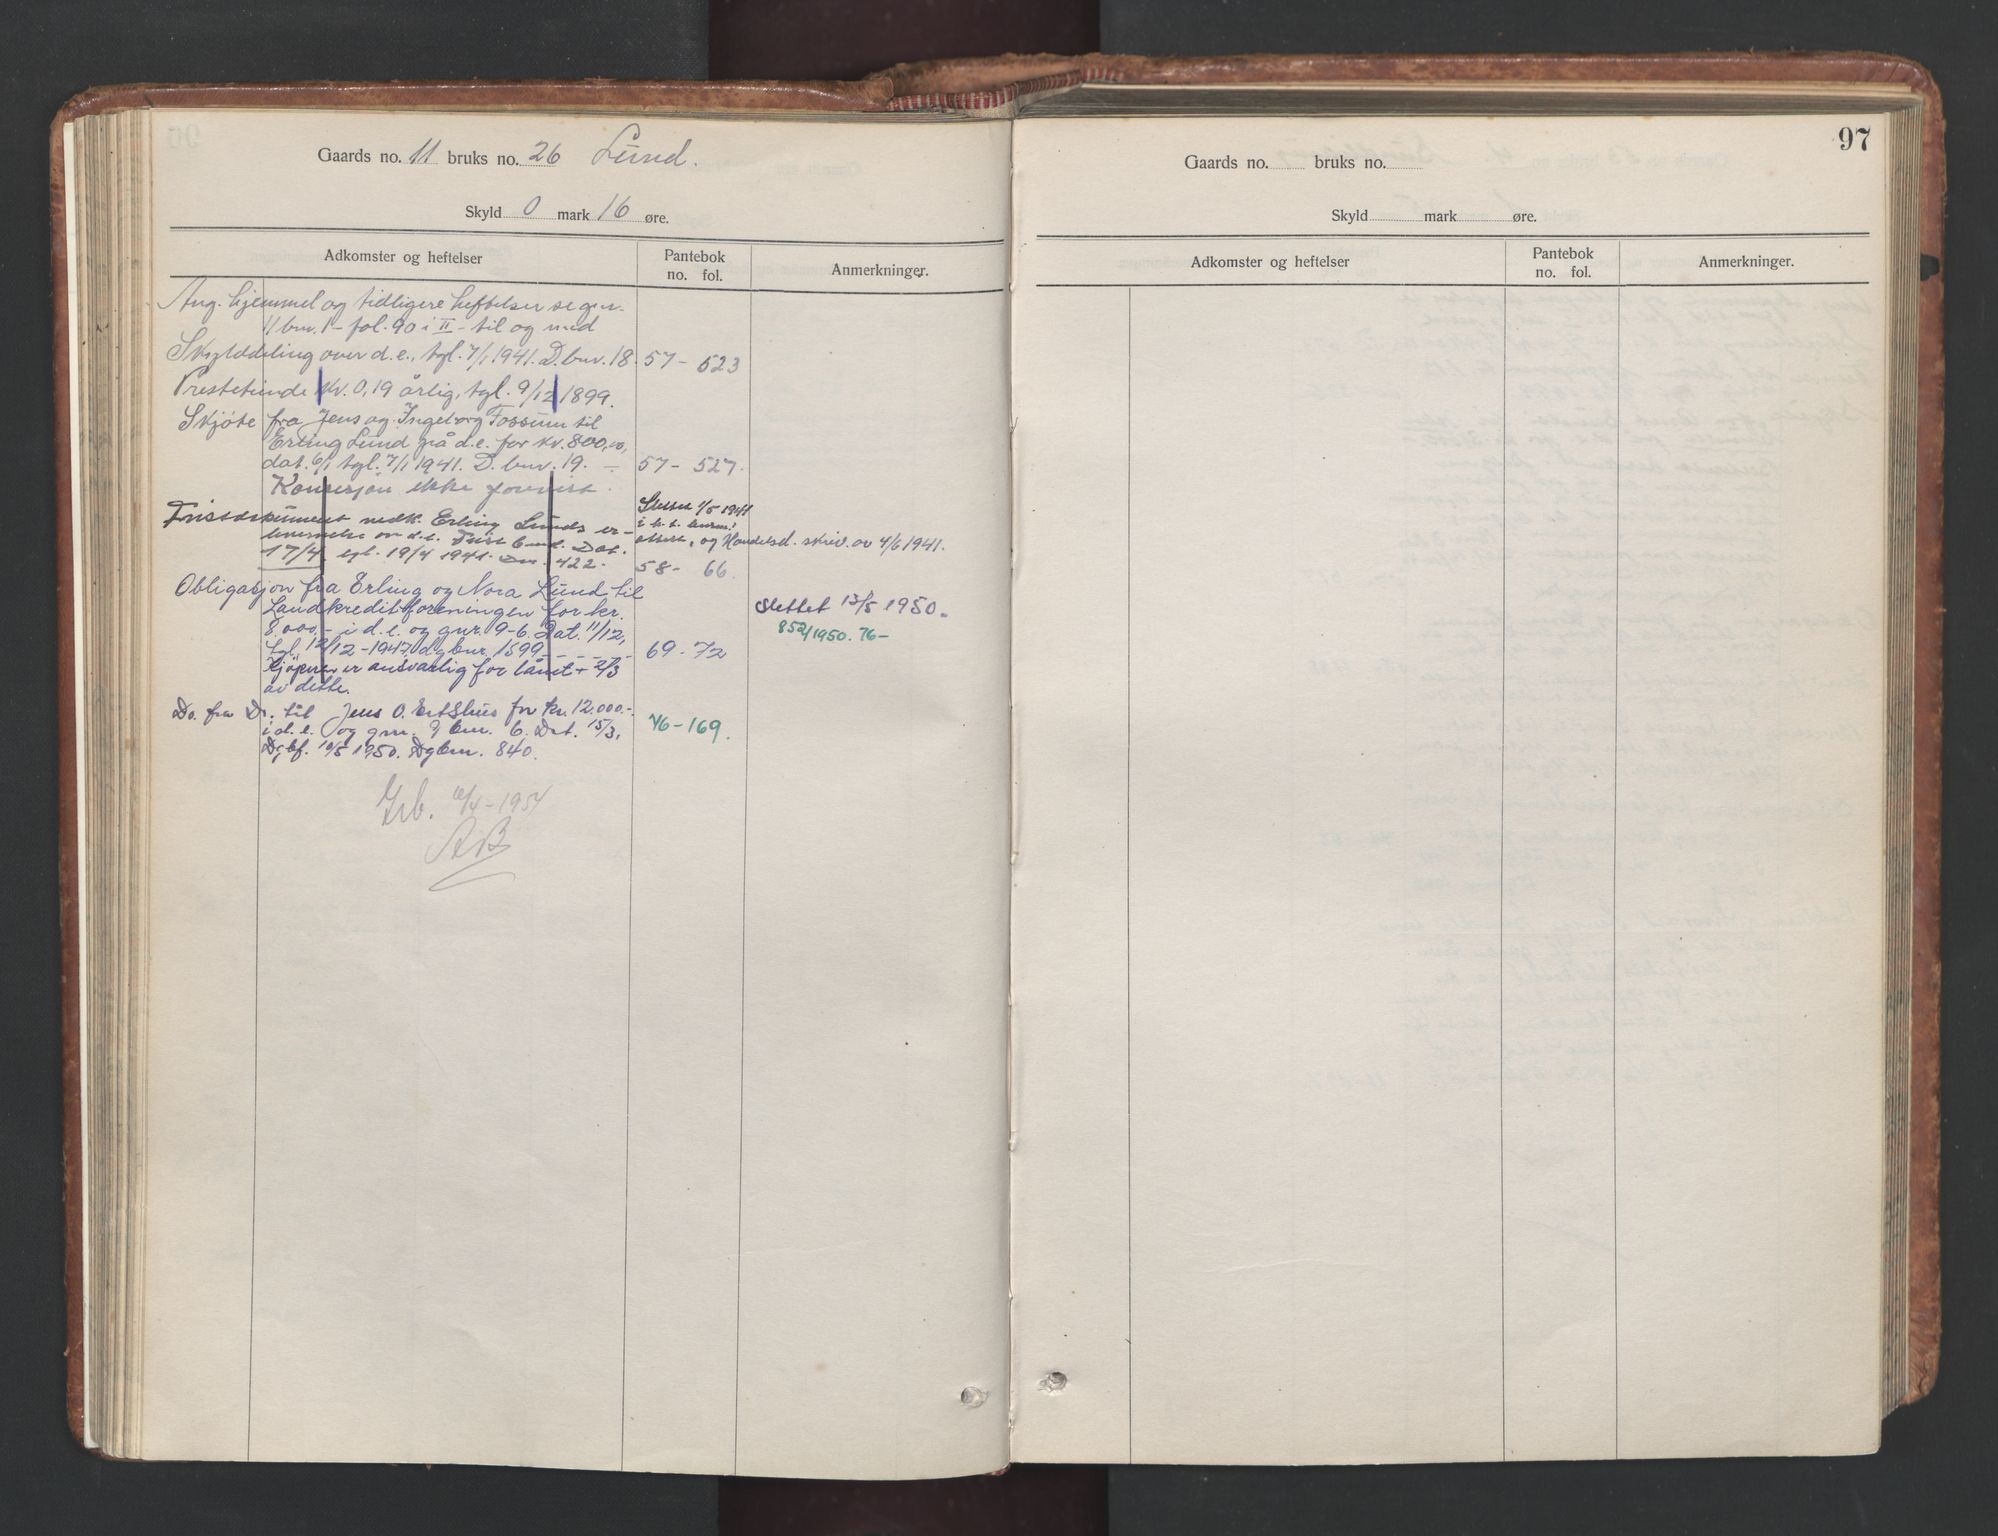 Gaards no. 11 bruks no. 26 Lund.
Skyld 0 mark 16 øre.
Adkomster og heftelser
Pantebok
no. fol.
Anmerkninger.
Ang. hjemmel og tidligere heftelser se gnr.
11 bnr. 1 - fol. 90 i II - til og med
Skylddeling over d.e., tgl. 7/1 1941. D.bnr. 18. 57 - 523
Prestetiende kr. 0,19 årlig, tgl. 9/12 1899.
Skjöte fra Jens og Ingeborg Fossum til
Erling Lund på d.e. for kr. 800,00,
dat. 6/1 tgl. 7/1 1941. D. bnr. 19. - 57 - 527.
Konsesjon ikke forevist.
Slettet 1/5 1941
Erling Lunds er-
og Handelsd. skriv. av 4/6 1941.
17/4, tgl. 19/4 1941. Dnr. 422. 58 - 66.
Obligasjon fra Erling og Nora Lund til
Landkreditforeningen for kr.
Slettet 13/5 1950.
8.000.- i d.e. og gnr. 9-6. Dat. 11/12,
852/1950. 76-
tgl. 12/12 - 1947, dgbnr. 1599 - - - - 69 - 72
Kjöperen er ansvarlig for lånet + 2/3
av dette.
Do. fra Do. til Jens O. Ertshus for kr. 12.000.-
i d.e. og gnr. 9 bnr. 6. Dat. 15/3, 76 - 169.
Dgbf. 10/5 1950. Dgbnr. 840.
/4 - 1954
AB
97
Gaards no. bruks no.
Skyld mark øre.
Adkomster og heftelser
Pantebok
no. fol.
Anmerkninger.